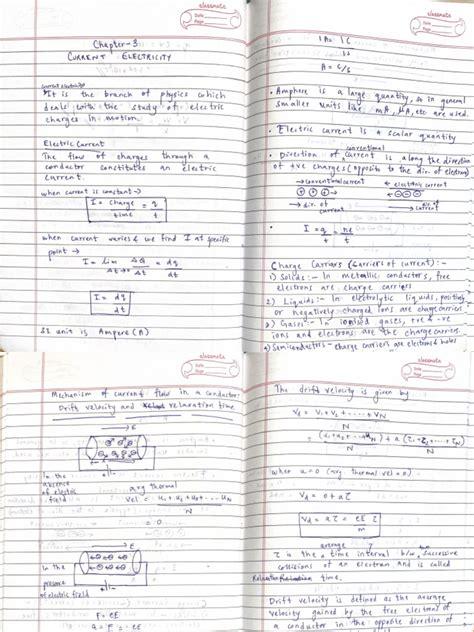 classmate
Date
Page
Chapter-3
CURRENT ELECTRICITY
Current electricity
It is the branch of physics which
deals with the study of electric
charges in motion.
Electric Current
The flow of charges through a
conductor constitutes an electric
current.
when current is constant →
I = charge = q
time t
when current varies & we find I at specific
point →
I = Lim ΔQ = dq
Δt→0 Δt dt
I = dq
dt
SI unit is Ampere (A)
classmate
Date
Page
1A = 1C
1s
A = C/s
• Amphere is a large quantity, so in general
smaller units like mA, μA, etc are used.
• Electric current is a scalar quantity
conventional
• Direction of current is along the direction
of +ve charges (opposite to the dir. of electron)
→ conventional current ← electronic current
→ dir. of current ← dir. of current
• I = q = ne
t t
Charge Carriers (Carriers of current) :-
1) Solids :- In metallic conductors, free
electrons are charge carriers
2) Liquids :- In electrolytic liquids, positively
or negatively charged ions are charge carriers
3) Gases :- In ionised gases, +ve & -ve
ions and electrons are the charge carriers.
4) Semiconductors - charge carriers are electrons & holes
classmate
Date
Page
Mechanism of current flow in a conductor:
Drift velocity and relaxation time
→ E
In the
absence
of electric
field
avg thermal
vel = u₁ + u₂ + u₃ + ... uN
N
= 0
→ E
In the
presence
of electric field
F = eE
a = F = eE
classmate
Date
Page
The drift velocity is given by
Vd = V₁ + V₂ + ..... + VN
N
= (u₁ + u₂ + ... + uN) + a (τ₁ + τ₂ + .... τN)
N
when u = 0 (avg thermal vel = 0) -
Vd = 0 + aτ
Vd = aτ = eE τ
m
average
τ is the time interval b/w successive
collisions of an electron and is called
Relaxation time.
Drift velocity is defined as the average
velocity gained by the free electrons of
a conductor in the opposite direction of